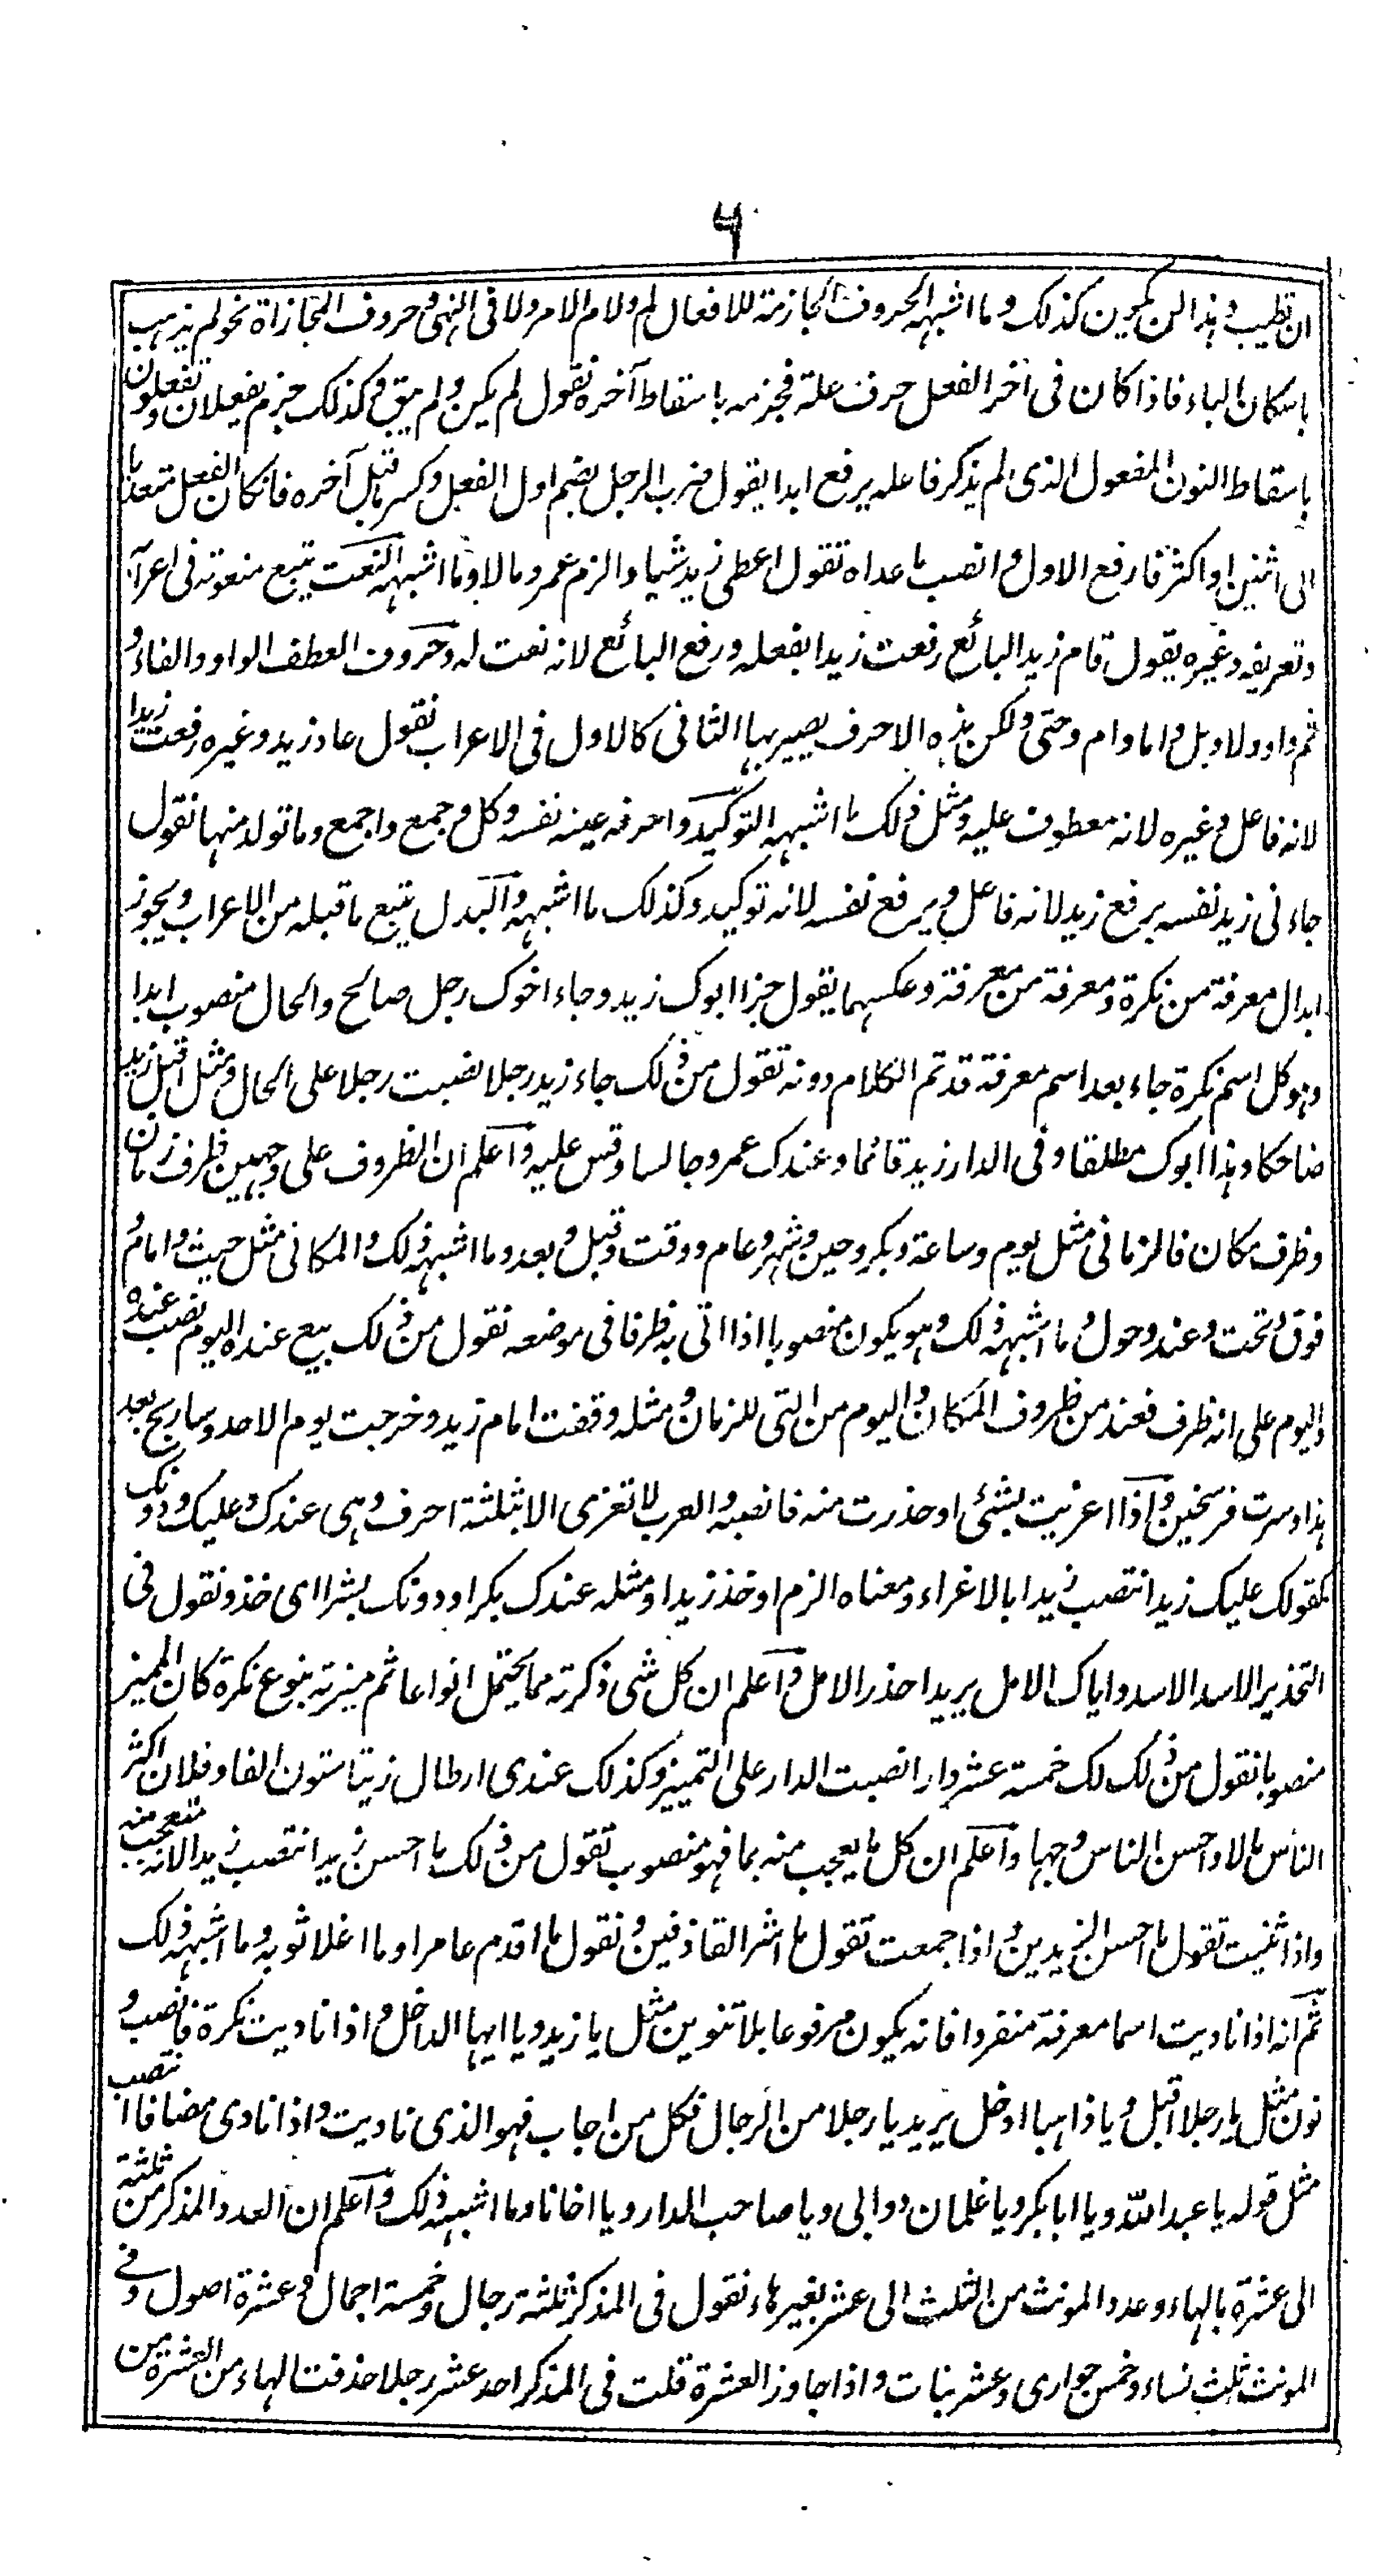 ۶
ان تطيب وهذا لن يكون كذلك وما اشبهه الحروف الجازمة للافعال لم ولام الامر ولا فى النهى وحروف المجازاة نحو لم يذهب
باسكان الباء فاذا كان فى آخر الفعل حرف علة فجزمه باسقاط آخره تقول لم يكن ولم يبق وكذلك جزم يفعلان وتفعلون
باسقاط النون المفعول الذى لم يذكر فاعله يرفع ابدا يقول ضرب الرجل بضم اول الفعل وكسر ما قبل آخره فان كان الفعل متعديا
الى اثنين او اكثر فارفع الاول وانصب ما عداه تقول اعطى زيد شيا والزم عمرو مالا وما اشبهه النعت يتبع منعوته فى اعرابه
وتعريفه وغيره يقول قام زيد البائع رفعت زيدا بفعله ورفع البائع لانه نعت له وحروف العطف الواو والفاء و
ثم واو ولا وبل واما وام وحتى ولكن هذه الاحرف يصير بها الثانى كالاول فى الاعراب تقول عاد زيد وغيره رفعت زيدا
لانه فاعل وغيره لانه معطوف عليه ومثل ذلك ما اشبهه التوكيد واحرفه عينه نفسه وكل وجمع واجمع وما تولد منها تقول
جاءنى زيد نفسه برفع زيد لانه فاعل ويرفع نفسه لانه توكيد وكذلك ما اشبهه والبدل يتبع ما قبله من الاعراب ويجوز
ابدال معرفة من نكرة ومعرفة من معرفة وعكسهما يقول هذا ابوك زيد وجاء اخوك رجل صالح والحال منصوب ابدا
وهو كل اسم نكرة جاء بعد اسم معرفة قد تم الكلام دونه تقول من ذلك جاء زيد رجلا نصبت رجلا على الحال ومثل اقبل زيد
ضاحكا وهذا ابوك مطلقا وفى الدار زيد قائما وعندك عمرو جالسا وقس عليه واعلم ان الظروف على وجهين ظرف زمان
وظرف مكان فالزمانى مثل يوم وساعة وبكر وحين وشهر وعام ووقت وقبل وبعد وما اشبهه ذلك والمكانى مثل حيث وامام و
فوق وتحت وعند وحول وما اشبهه ذلك وهو يكون منصوبا اذا اتى به ظرفا فى موضعه تقول من ذلك بيع عنده اليوم نصب عنده
واليوم على انه ظرف فعند من ظروف المكان واليوم من التى للزمان ومثله وقفت امام زيد وخرجت يوم الاحد وساريح بعد
هذا وسرت فرسخين واذا اغريت بشئ او حذرت منه فانصبه والعرب لا تغرى الا بثلثة احرف وهى عندك وعليك ودونك
كقولك عليك زيدا تنصب زيدا بالاغراء ومعناه الزم او خذ زيدا ومثله عندك بكرا ودونك بشرا اى خذ وتقول فى
التحذير الاسد الاسد واياك الامل يريد احذر الامل واعلم ان كل شى ذكرته مما يحتمل انواعا ثم ميزته بنوع نكرة كان المميز
منصوبا تقول من ذلك لك خمسة عشر دارا نصبت الدار على التمييز وكذلك عندى ارطال زيتا ستون الفا وفلان اكثر
الناس مالا واحسن الناس وجها واعلم ان كل ما يعجب منه بما فهو منصوب تقول من ذلك ما احسن زيدا تنصب زيدا لانه متعجب منه
واذا ثنيت تقول ما احسن الزيدين واذا جمعت تقول ما اشر القاذفين وتقول ما اقدم عامرا وما اغلا ثوبه وما اشبهه ذلك
ثم انه اذا ناديت اسما معرفة منفردا فانه يكون مرفوعا بلا تنوين مثل يا زيد ويا ايها الداخل واذا ناديت نكرة فانصب و
نون مثل يا رجلا اقبل ويا ذاهبا ادخل يريد يا رجلا من الرجال فكل من اجاب فهو الذى ناديت واذا نادى مضافا انتصب
مثل قوله يا عبد الله ويا ابا بكر ويا غلمان دوالى ويا صاحب الدار ويا اخانا وما اشبهه ذلك واعلم ان العدد المذكر من ثلثة
الى عشرة بالهاء وعدد المونث من الثلث الى عشر بغير هاء تقول فى المذكر ثلثة رجال وخمسة اجمال وعشرة اصول وفى
المونث ثلث نساء وخمس جوارى وعشر بنات واذا جاوز العشرة قلت فى المذكر احد عشر رجلا حذفت الهاء من العشرة من